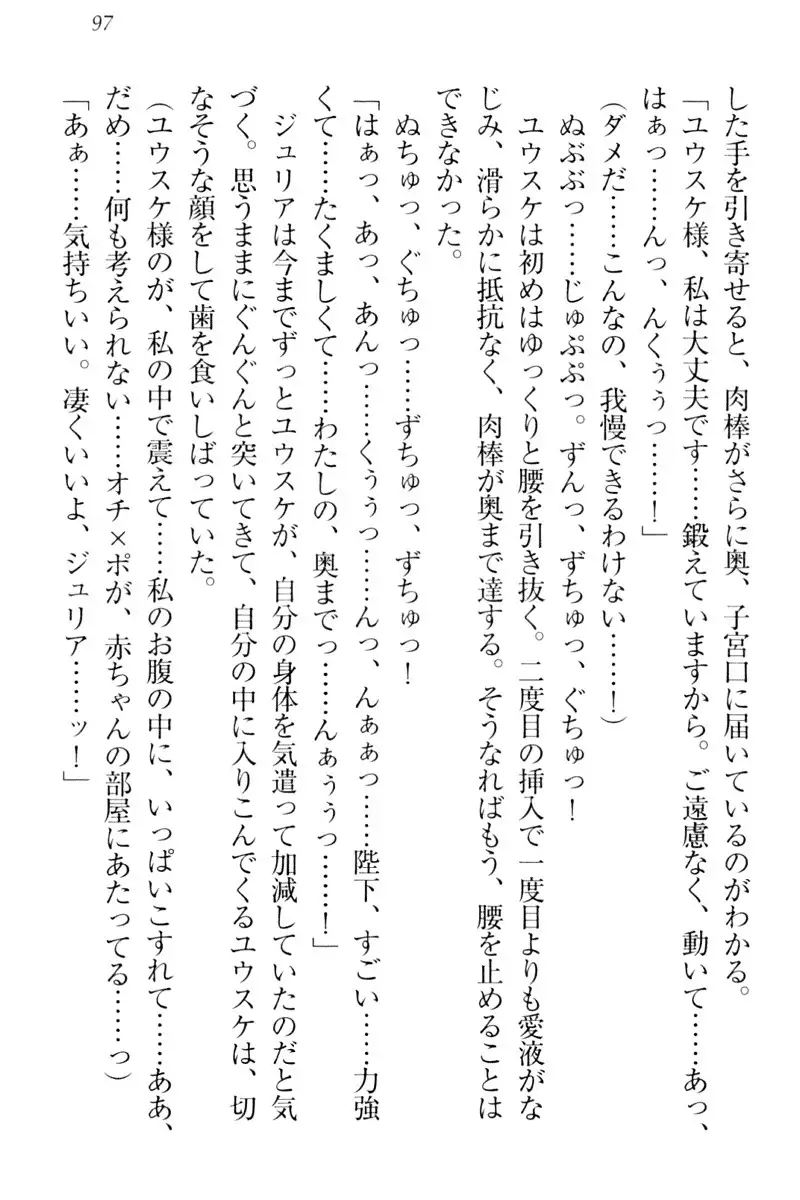 97
した手を引き寄せると、肉棒がさらに奥、子宮口に届いているのがわかる。
「ユウスケ様、私は大丈夫です……鍛えていますから。ご遠慮なく、動いて……あっ、
はぁっ……んっ、んくぅぅっ……！」
(ダメだ……こんなの、我慢できるわけない……！)
ぬぶぶっ……じゅぷぷっ。ずんっ、ずちゅっ、ぐちゅっ！
ユウスケは初めはゆっくりと腰を引き抜く。二度目の挿入で一度目よりも愛液がな
じみ、滑らかに抵抗なく、肉棒が奥まで達する。そうなればもう、腰を止めることは
できなかった。
ぬちゅっ、ぐちゅっ……ずちゅっ、ずちゅっ！
「はぁっ、あっ、あんっ……くぅぅっ……んっ、んぁぁっ……陛下、すごい……力強
くて……たくましくて……わたしの、奥までっ……んぁぅぅっ……！」
ジュリアは今までずっとユウスケが、自分の身体を気遣って加減していたのだと気
づく。思うままにぐんぐんと突いてきて、自分の中に入りこんでくるユウスケは、切
なそうな顔をして歯を食いしばっていた。
(ユウスケ様のが、私の中で震えて……私のお腹の中に、いっぱいこすれて……ああ、
だめ……何も考えられない……オチ×ポが、赤ちゃんの部屋にあたってる……っ)
「あぁ……気持ちいい。凄くいいよ、ジュリア……ッ！」